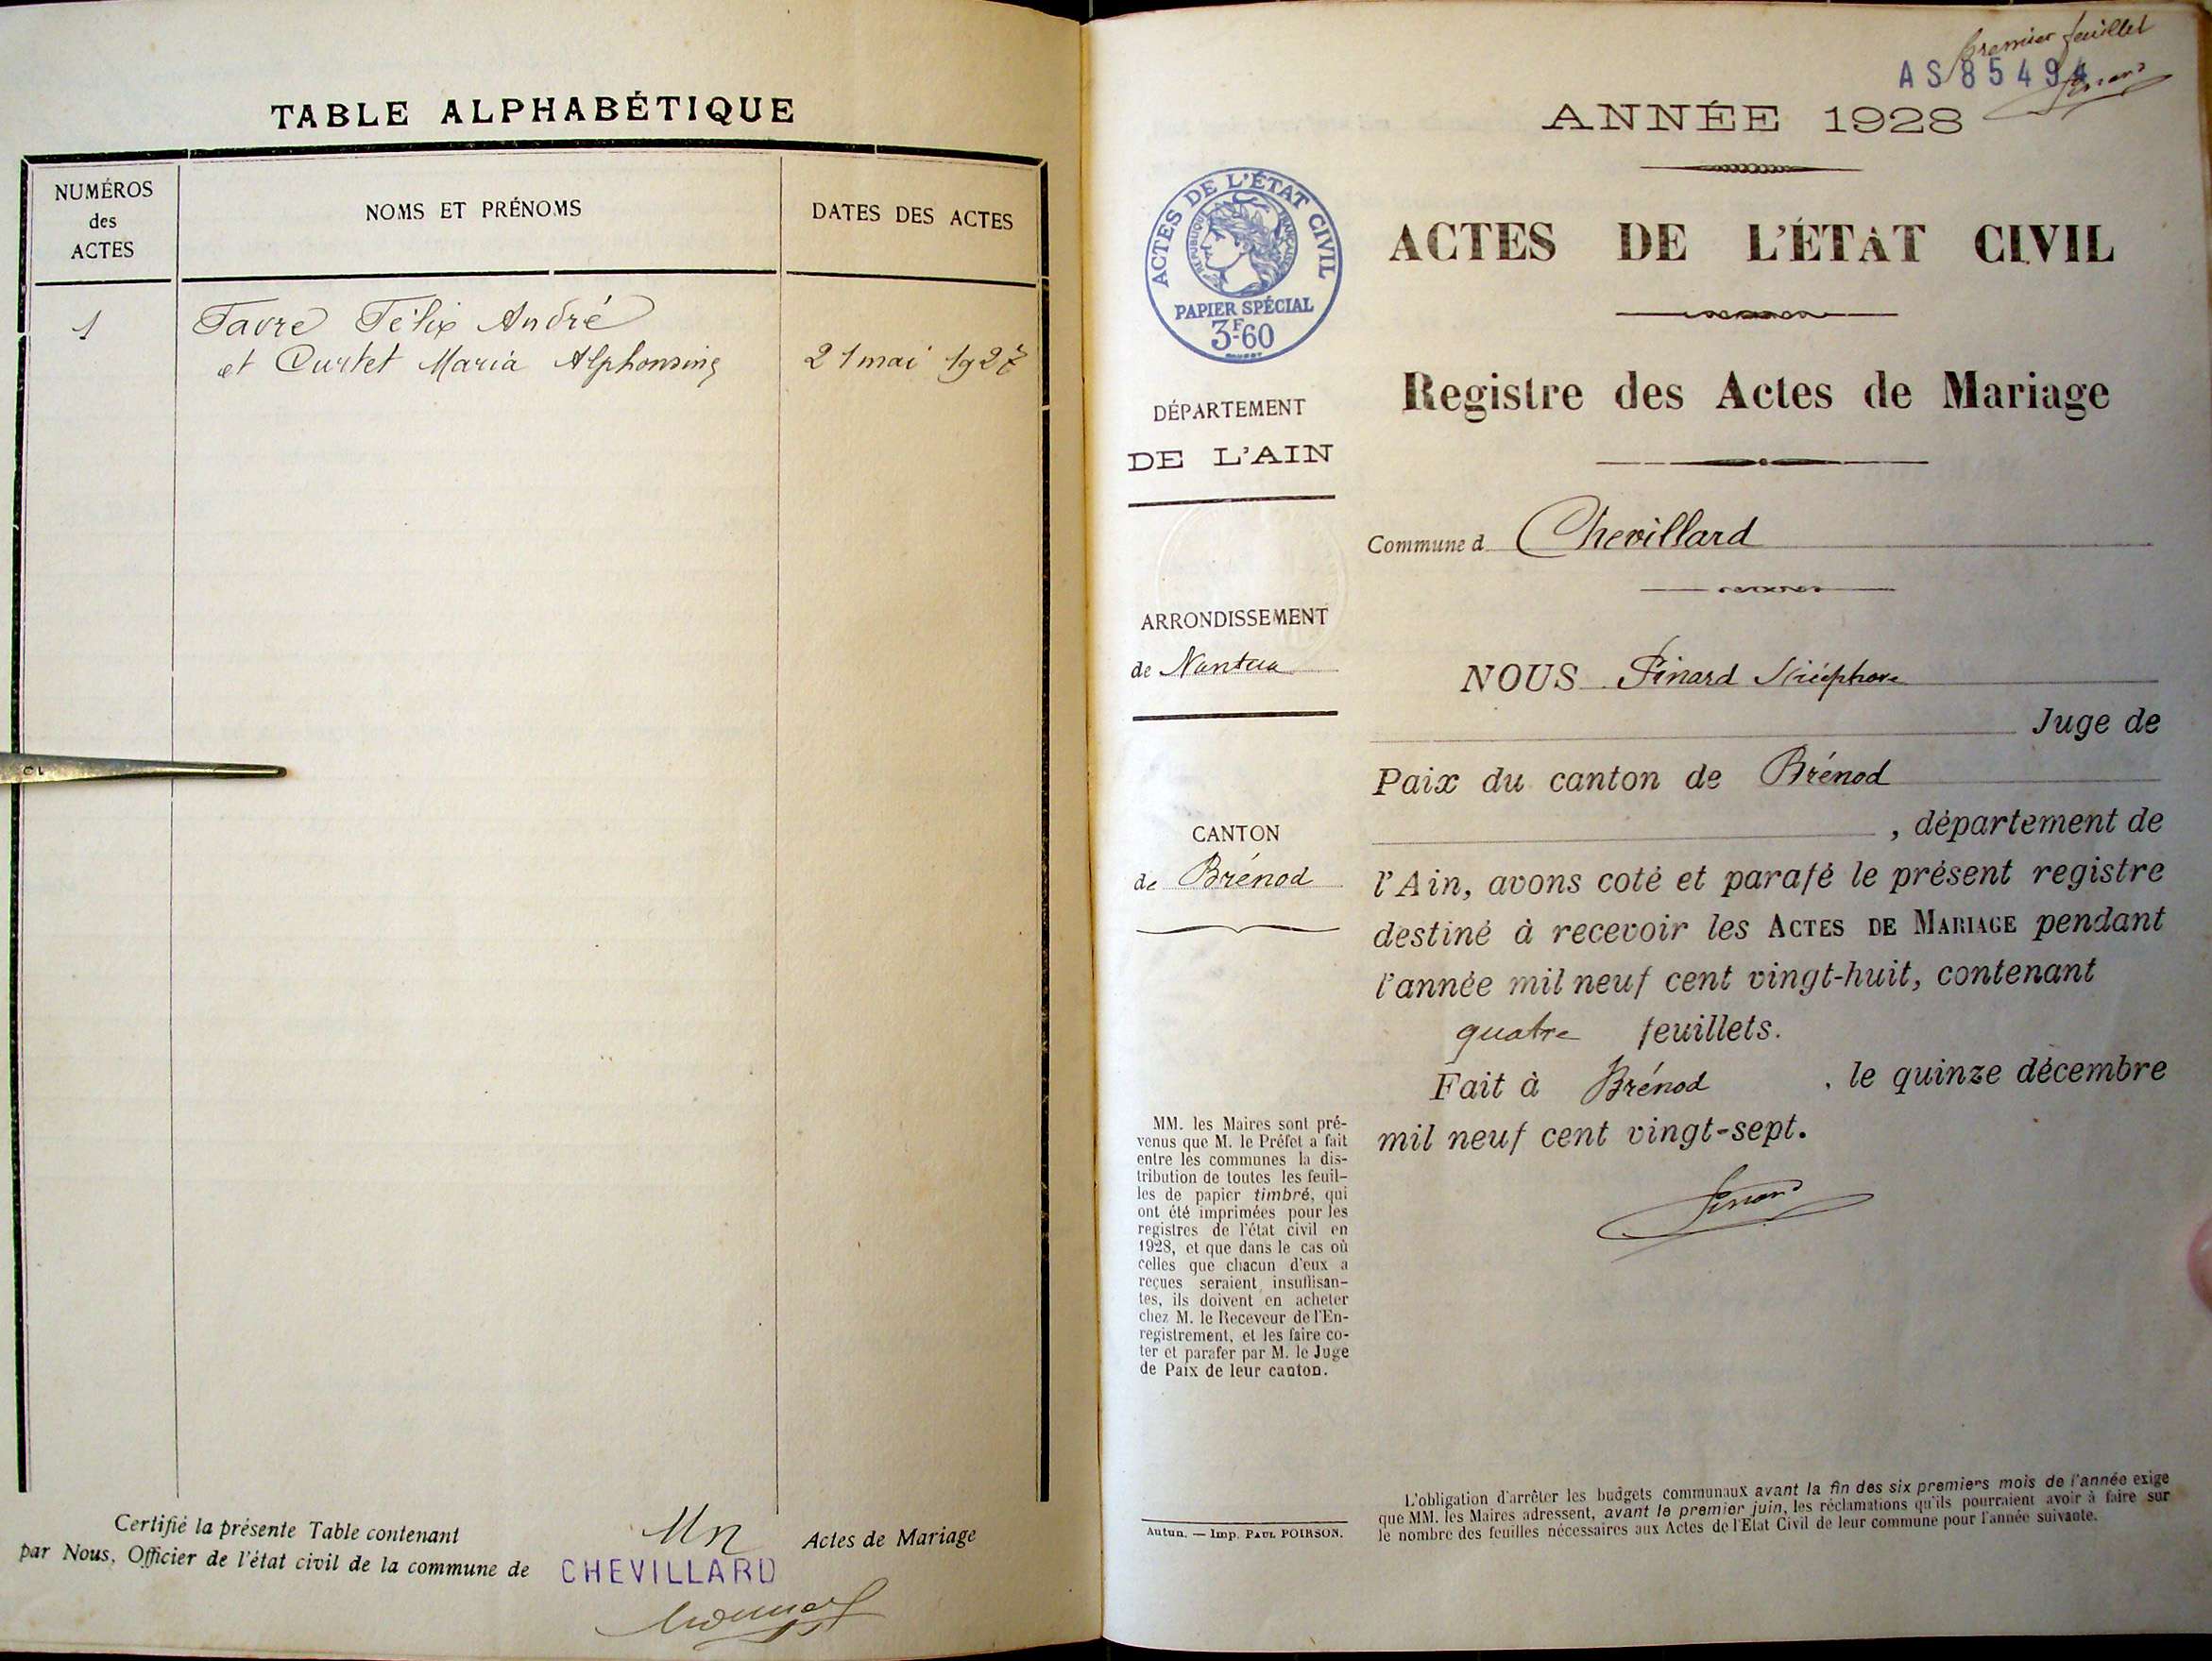 TABLE ALPHABÉTIQUE
NUMÉROS
des
ACTES
NOMS ET PRÉNOMS
DATES DES ACTES
1
Favre Félix André
et Curtet Maria Alphonsine
21 mai 1927
Certifié la présente Table contenant Un Actes de Mariage
par Nous, Officier de l'état civil de la commune de CHEVILLARD
premier feuillet
AS 85494
ANNÉE 1928
ACTES DE L'ÉTAT CIVIL
RÉPUBLIQUE FRANÇAISE
PAPIER SPÉCIAL
3F60
ACTES DE L'ÉTAT CIVIL
Registre des Actes de Mariage
DÉPARTEMENT
DE L'AIN
ARRONDISSEMENT
de Nantua
CANTON
de Brénod
MM. les Maires sont pré-
venus que M. le Préfet a fait
entre les communes la dis-
tribution de toutes les feuil-
les de papier timbré, qui
ont été imprimées pour les
registres de l'état civil en
1928, et que dans le cas où
celles que chacun d'eux a
reçues seraient insuffisan-
tes, ils doivent en acheter
chez M. le Receveur de l'En-
registrement, et les faire co-
ter et parafer par M. le Juge
de Paix de leur canton.
Autun. — Imp. PAUL POIRSON.
Commune d Chevillard
NOUS Pinard
Juge de
Paix du canton de Brénod
, département de
l'Ain, avons coté et parafé le présent registre
destiné à recevoir les ACTES DE MARIAGE pendant
l'année mil neuf cent vingt-huit, contenant
quatre feuillets.
Fait à Brénod , le quinze décembre
mil neuf cent vingt-sept.
L'obligation d'arrêter les budgets communaux avant la fin des six premiers mois de l'année exige
que MM. les Maires adressent, avant le premier juin, les réclamations qu'ils pourraient avoir à faire sur
le nombre des feuilles nécessaires aux Actes de l'Etat Civil de leur commune pour l'année suivante.